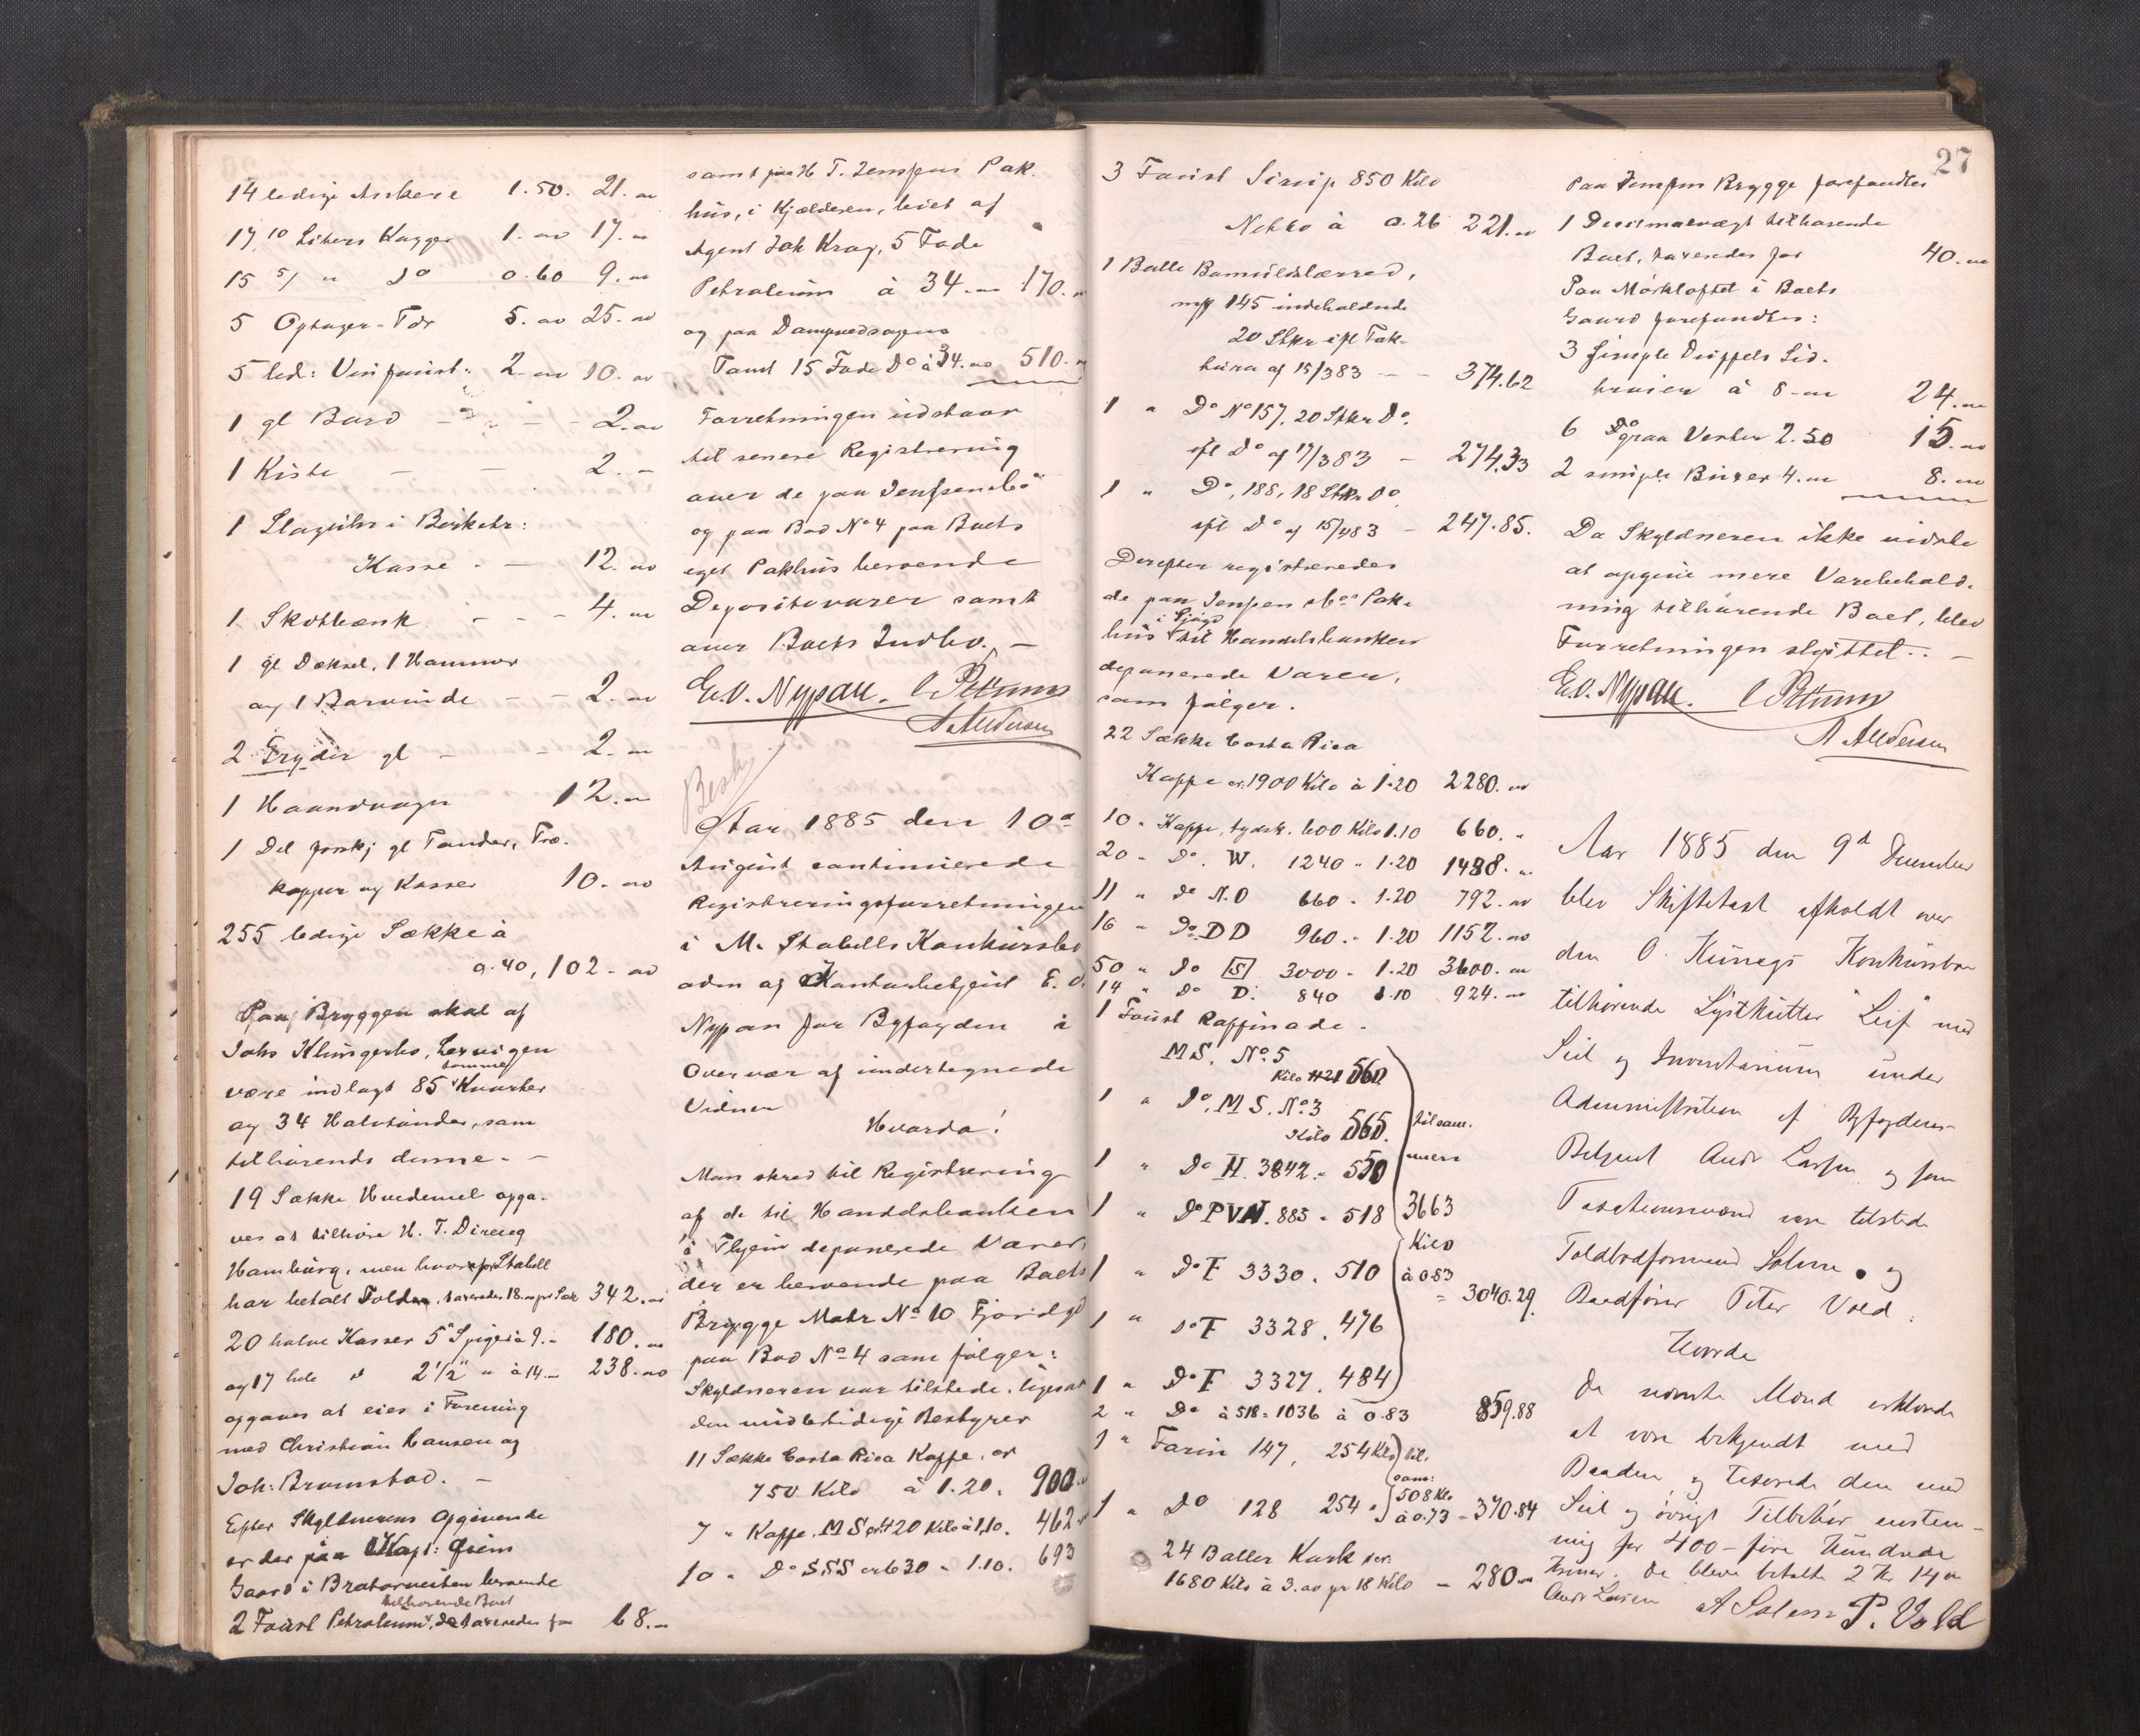 14 ledige Ankere 1.50. 21.
17 10 Liters Kagger 1. 17.
15 5/ " Do 0.60 9.
5 Tdr 5. 25.
5 led: Vinfoust: 2. 10.
1 gl Bord - - - 2.
1 Kiste - - 2. -
1 Slaguhr i Birketr:
Kasse - - 12.
1 Skotbænk - - - 4.
1 gl Dæksel, 1 Hammer
og 1 - - 2.
2 Gryder gl - - 2.
1 Haandvogn 12.
1 Del forskj gl Tønder, Træ-
kopper og Kasser 10.
255 ledige Sække à
0.40, 102 -
Paa Bryggen skal af
Johs Klingenbo,
være indlagt 85 tomme Kvarter
og 34 Halvtønder, som
tilhørende denne. -
19 Sække Hvedemel opga-
ves at tilhøre H. T.
Hamburg, men hvorpaa Stabell
har betalt Tolden, taxeredes 18. pr Sæk 342.
20 halve Kasser 5" Spiger à 9. - 180.
og 17 hele d 2 1/2" " à 14. 238.
opgaves at eies i Forening
med Christian Hansen og
Joh: Bromstad. -
Efter Skyldnerens Opgivende
er der paa Kapt: Qvims
Gaard i Bratørveiten beroende
2 Foust Petroleum, tilhørende Boet de taxeredes for 68.
samt paa H T. Jenssens Pak-
hus, i Kjælderen, leiet af
Agent Joh Krag, 5 Fade
Petroleum à 34. 170.
og paa Dampvedsagens
Tomt 15 Fade Do à 34. 510.
Forretningen udstaar
til senere Registrering
over de paa Jenssen & Co
og paa Bod No 4 paa Boets
eget Pakhus beroende
Depositovarer samt
over Boets Indbo. -
E.O. Nypan. C Pettersen
A Andersen
Aar 1885 den 10d
August continuerede
Registreringsforretningen
i M. Stabells Konkursbo
aden af Kontorbetjent E. O.
Nypan for Byfogden i
Overvær af undertegnede
Vidner
Hvorda!
Man skred til Registrering
af de til Handelsbanken
i Thjem deponerede Varer,
der er beroende paa Boets
Brygge Matr No 10 Fjordgd
paa Bod No 4 som følger:
Skyldneren var tilstede, ligesaa
den midlertidige Bestyrer
11 Sække Costa Rica Kaffe, er
750 Kilo à 1.20. 900.
7 " Kaffe. MS er 420 Kilo à 1.10. 462
10 " Do SSS er 630 " 1.10. 693
27
3 Foust Sirup 850 Kilo
Netto à 0.26 221.
1 Balle Bomuldslærred,
mrk 145 indeholdende
20 Stkr ifl Fak-
tura af 15/3 83 - - 374.62
1 " Do No 157, 20 Stkr Do.
ifl Do af 17/3 83 - 274.33
1 " Do, 188, 18 Stkr Do
ifl Do af 15/4 83 - 247.85.
Derefter registreredes
de paa Jenssen & Cos Pak-
hus i Sjøgd til Handelsbanken
deponerede Varer,
som følger.
22 Sække Costa Rica
Kaffe er 1900 Kilo à 1.20 2280.
10 " Kaffe, tydsk. 600 Kilo 1.10 660. "
20 " Do. W. 1240 " 1.20 1488.
11 " do N.O 660 " 1.20 792.
16 " Do DD 960 " 1.20 1152.
50 " Do S 3000 " 1.20 3600.
14 " Do D. 840 1.10 924.
1 Foust Raffinade.
MS. No. 5
Kilo 560
1 " Do. M S. No. 3
Kilo 565.
1 " Do H. 3842 - 550
1 " Do PVN. 885 - 518
1 " Do F 3330. 510
1 " do F 3328. 476
1 " Do F 3327. 484
tilsam-
mens
3663
Kilo
à 0.83
= 3040.29.
2 " Do à 518 = 1036 à 0.83 859.88
1 " Farin 147, 254 Kilo til-
sam:
1 " Do 128 254 " 508 Klo à 0.73 = 370.84
24 Baller Kork
1680 Kilo à 3. pr 18 Kilo = 280.
Paa Jenssens Brygge forefandtes
1 Decimalvægt tilhørende
Boet, taxeredes for 40.
Paa Mørkloftet i Boets
Gaard forefandtes:
3 simple Duffels Sid-
trøier à 8. 24.
6 Do graa Vester 2.50 15.
2 simple Buxer 4. 8.
Da Skyldneren ikke vidste
at opgive mere Varebehold-
ning tilhørende Boet, blev
Forretningen sluttet. -
E.O. Nypan. C Pettersen
A Andersen
Aar 1885 den 9d December
blev Skiftetaxt afholdt over
den O. Kunigs Konkursbo
tilhørende Lystkutter "Leif" med
Seil og Inventarium under
Administration af Byfogdens
Betjent Andr Larsen og som
Taxationsmænd vare tilstede
Toldbodformand Solem og
Baadfører Peter Vold.
Hvorda
De nævnte Mænd erklærede
at være bekjendt med
Baaden, og taxerede den med
Seil og øvrigt Tilbehør enstem-
mig for 400 - fire Hundrede
Kroner. De bleve betalte 2 Kr 14
Andr Larsen A Solem P. Vold